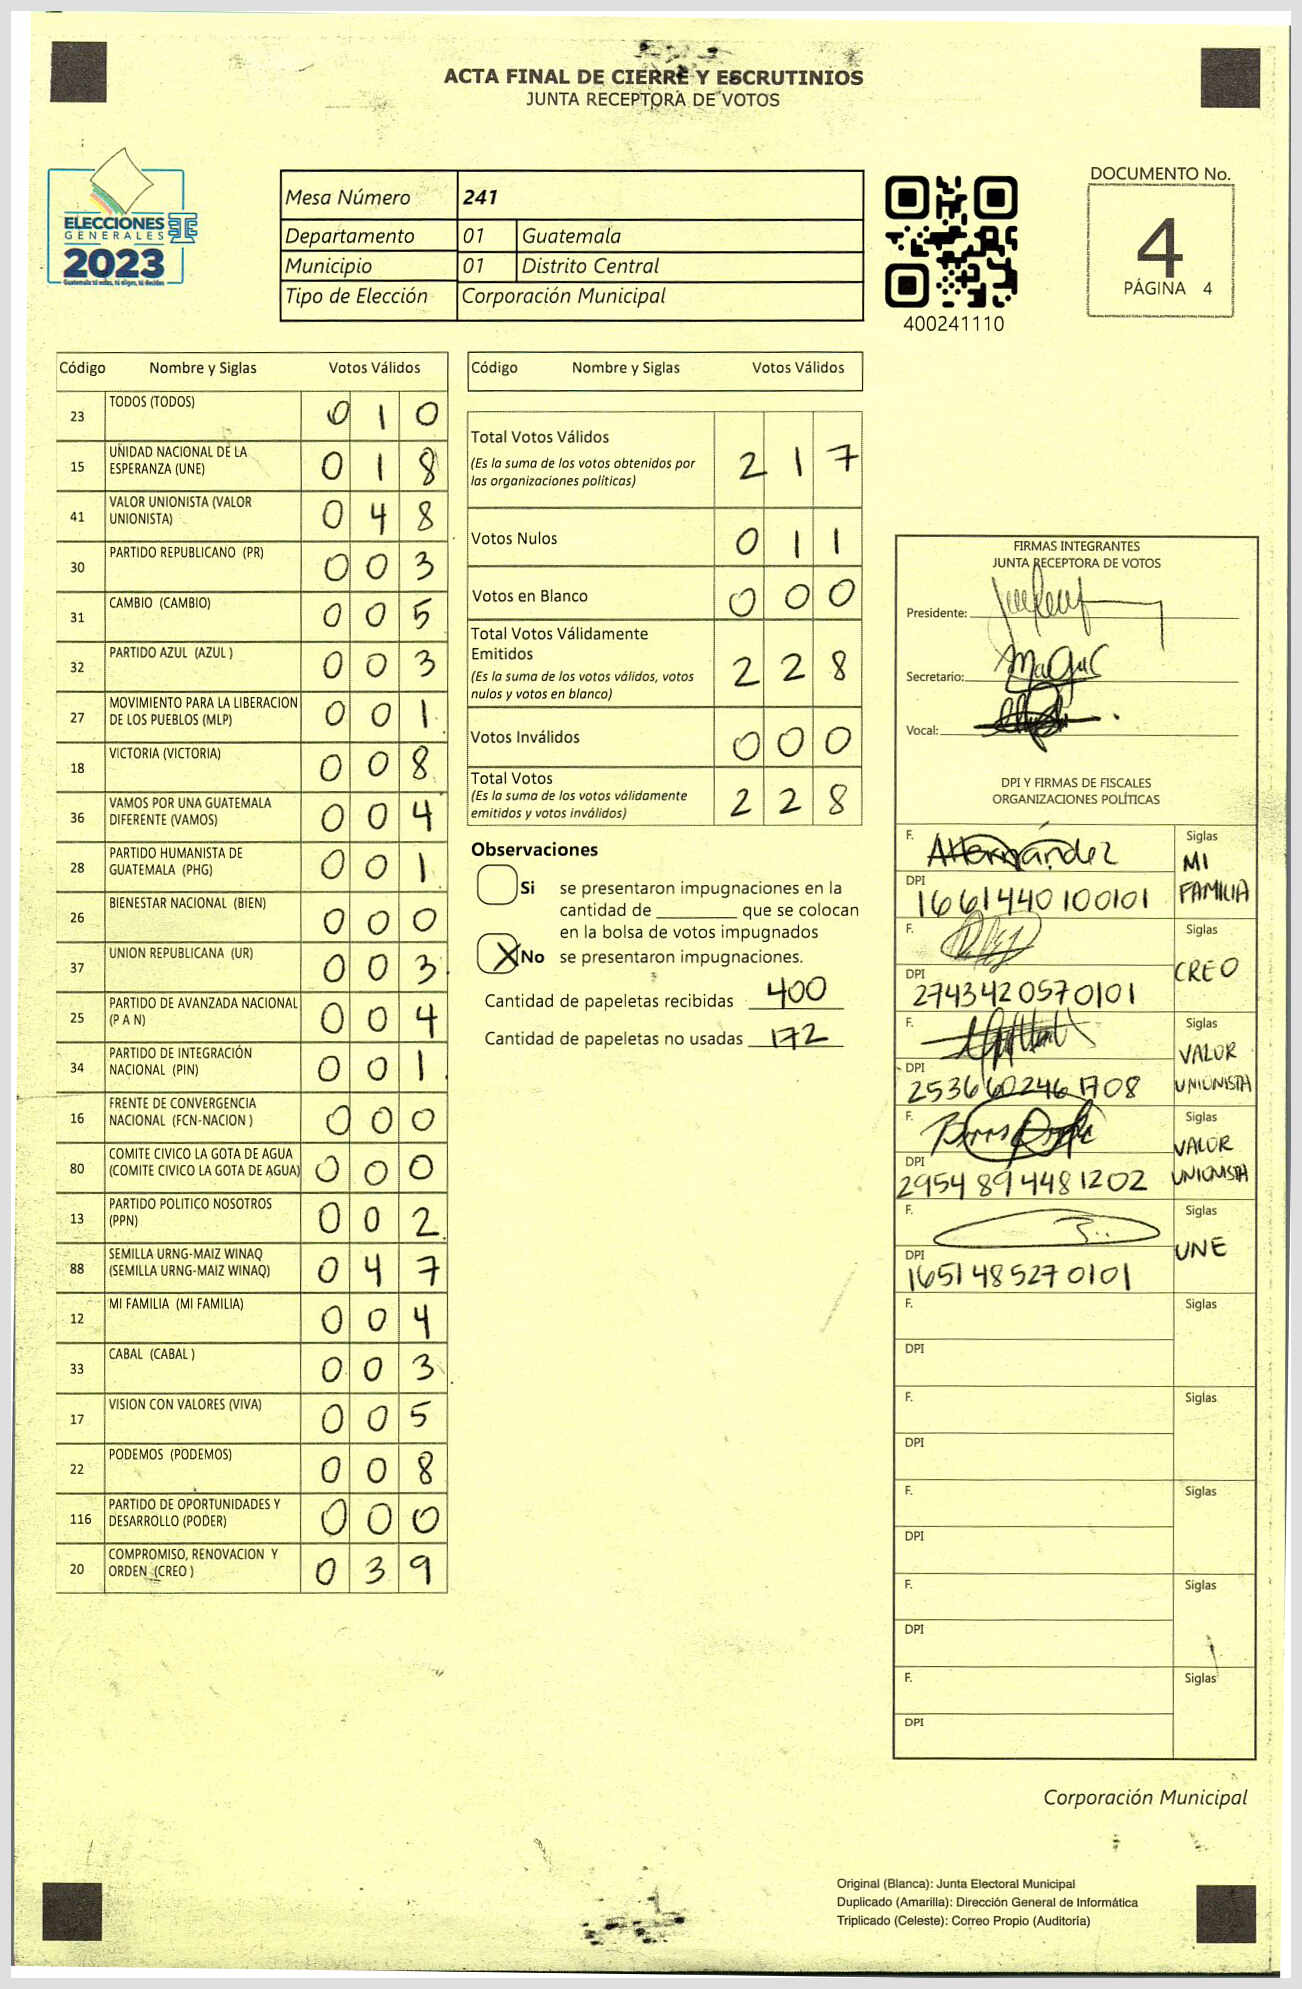 ACTA FINAL DE CIERRE Y ESCRUTINIOS
JUNTA RECEPTORA DE VOTOS
ELECCIONES
GENERALES
2023
Guatemala tú eres, tú eliges, tú decides
Mesa Número 241
Departamento 01 Guatemala
Municipio 01 Distrito Central
Tipo de Elección Corporación Municipal
400241110
DOCUMENTO No.
4
PÁGINA 4
Código Nombre y Siglas Votos Válidos
23 TODOS (TODOS) 0 1 0
15 UNIDAD NACIONAL DE LA
ESPERANZA (UNE) 0 1 8
41 VALOR UNIONISTA (VALOR
UNIONISTA) 0 4 8
30 PARTIDO REPUBLICANO (PR) 0 0 3
31 CAMBIO (CAMBIO) 0 0 5
32 PARTIDO AZUL (AZUL ) 0 0 3
27 MOVIMIENTO PARA LA LIBERACION
DE LOS PUEBLOS (MLP) 0 0 1
18 VICTORIA (VICTORIA) 0 0 8
36 VAMOS POR UNA GUATEMALA
DIFERENTE (VAMOS) 0 0 4
28 PARTIDO HUMANISTA DE
GUATEMALA (PHG) 0 0 1
26 BIENESTAR NACIONAL (BIEN) 0 0 0
37 UNION REPUBLICANA (UR) 0 0 3
25 PARTIDO DE AVANZADA NACIONAL
(P A N) 0 0 4
34 PARTIDO DE INTEGRACIÓN
NACIONAL (PIN) 0 0 1
16 FRENTE DE CONVERGENCIA
NACIONAL (FCN-NACION ) 0 0 0
80 COMITE CIVICO LA GOTA DE AGUA
(COMITE CIVICO LA GOTA DE AGUA) 0 0 0
13 PARTIDO POLITICO NOSOTROS
(PPN) 0 0 2
88 SEMILLA URNG-MAIZ WINAQ
(SEMILLA URNG-MAIZ WINAQ) 0 4 7
12 MI FAMILIA (MI FAMILIA) 0 0 4
33 CABAL (CABAL ) 0 0 3
17 VISION CON VALORES (VIVA) 0 0 5
22 PODEMOS (PODEMOS) 0 0 8
116 PARTIDO DE OPORTUNIDADES Y
DESARROLLO (PODER) 0 0 0
20 COMPROMISO, RENOVACION Y
ORDEN (CREO ) 0 3 9
Código Nombre y Siglas Votos Válidos
Total Votos Válidos 2 1 7
(Es la suma de los votos obtenidos por
las organizaciones políticas)
Votos Nulos 0 1 1
Votos en Blanco 0 0 0
Total Votos Válidamente
Emitidos 2 2 8
(Es la suma de los votos válidos, votos
nulos y votos en blanco)
Votos Inválidos 0 0 0
Total Votos 2 2 8
(Es la suma de los votos válidamente
emitidos y votos inválidos)
Observaciones
Si se presentaron impugnaciones en la
cantidad de ________ que se colocan
en la bolsa de votos impugnados
X No se presentaron impugnaciones.
Cantidad de papeletas recibidas 400
Cantidad de papeletas no usadas 172
FIRMAS INTEGRANTES
JUNTA RECEPTORA DE VOTOS
Presidente:
Secretario:
Vocal:
DPI Y FIRMAS DE FISCALES
ORGANIZACIONES POLÍTICAS
F. AHernández Siglas
MI
FAMILIA
DPI
1661440100101
F. Siglas
CREO
DPI
2743420570101
F. Siglas
VALOR
UNIONISTA
DPI
2536602461708
F. Siglas
VALOR
UNIONISTA
DPI
2954894481202
F. Siglas
UNE
DPI
1651485270101
F. Siglas
DPI
F. Siglas
DPI
F. Siglas
DPI
F. Siglas
DPI
F. Siglas
DPI
Corporación Municipal
Original (Blanca): Junta Electoral Municipal
Duplicado (Amarilla): Dirección General de Informática
Triplicado (Celeste): Correo Propio (Auditoría)